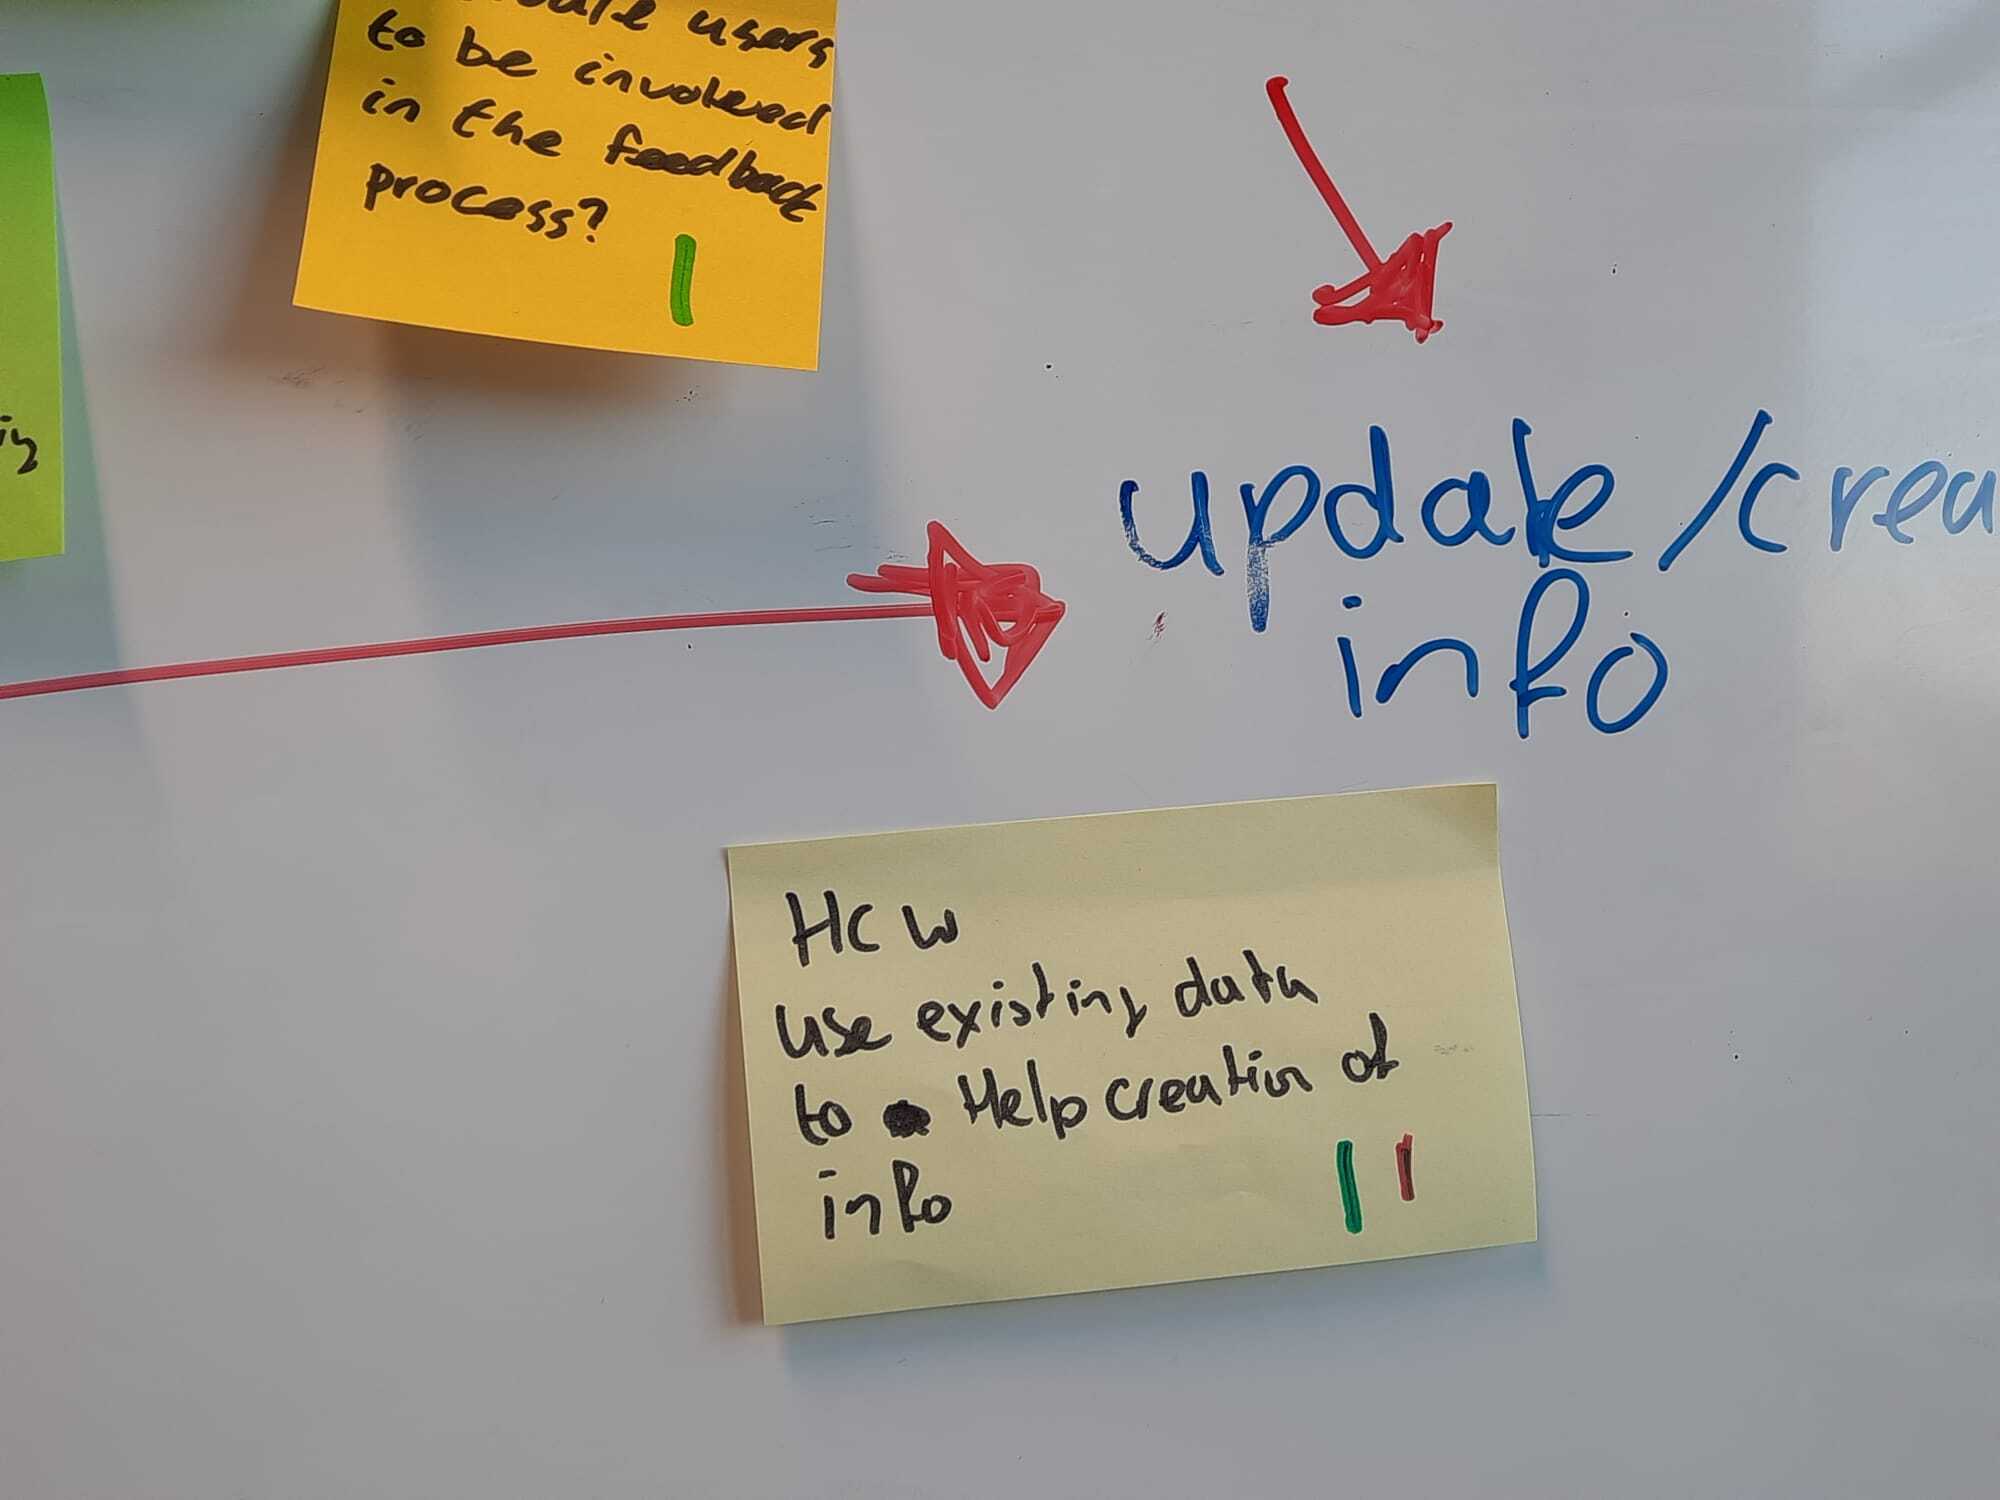 users
to be involved
in the feedback
process?
update/crea
info
HCW
use existing data
to Help creation of
info